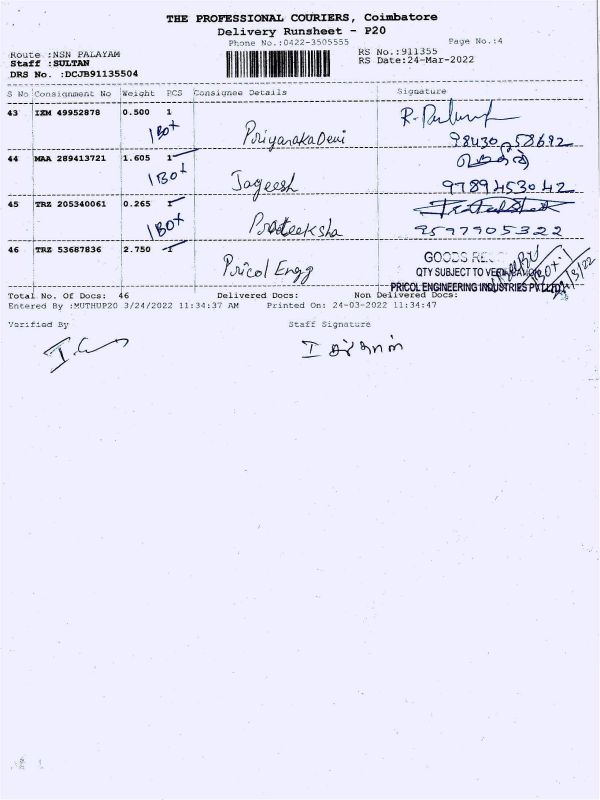 THE PROFESSIONAL COURIERS, Coimbatore
Delivery Runsheet - P20
Phone No.:0422-3505555
Page No.:4
Route :NSN PALAYAM
RS No.:911355
Staff :SULTAN
RS Date:24-Mar-2022
DRS No. :DCJB91135504
S No Consignment No Weight PCS Consignee Details Signature
43 IXM 49952878 0.500 1
1 Box Priyanaka Devi
98430 58692
44 MAA 289413721 1.605 1
1 Box Jageesh 9789453042
45 TRZ 205340061 0.265 1
1 Box Prateeksha 9597905322
46 TRZ 53687836 2.750 1
Pricol Engg
GOODS
QTY SUBJECT TO
PRICOL ENGINEERING INDUSTRIES PVT LTD
Total No. Of Docs: 46 Delivered Docs: Non Delivered Docs:
Entered By :MUTHUP20 3/24/2022 11:34:37 AM Printed On: 24-03-2022 11:34:47
Verified By Staff Signature